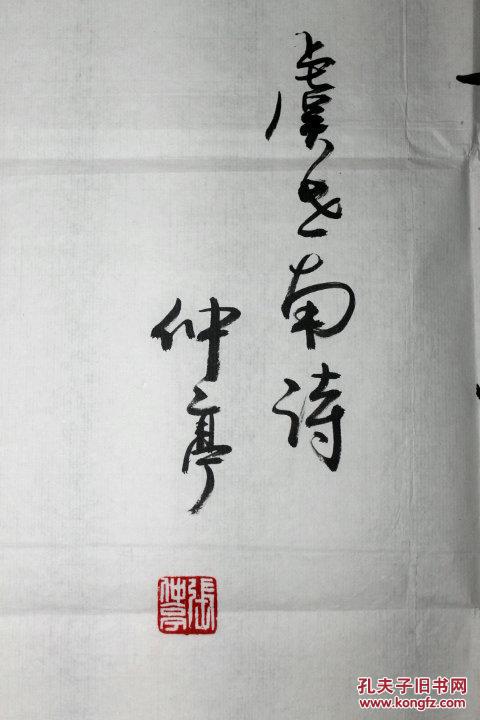 虞世南诗
仲亭
张仲亭
孔夫子旧书网
www.kongfz.com